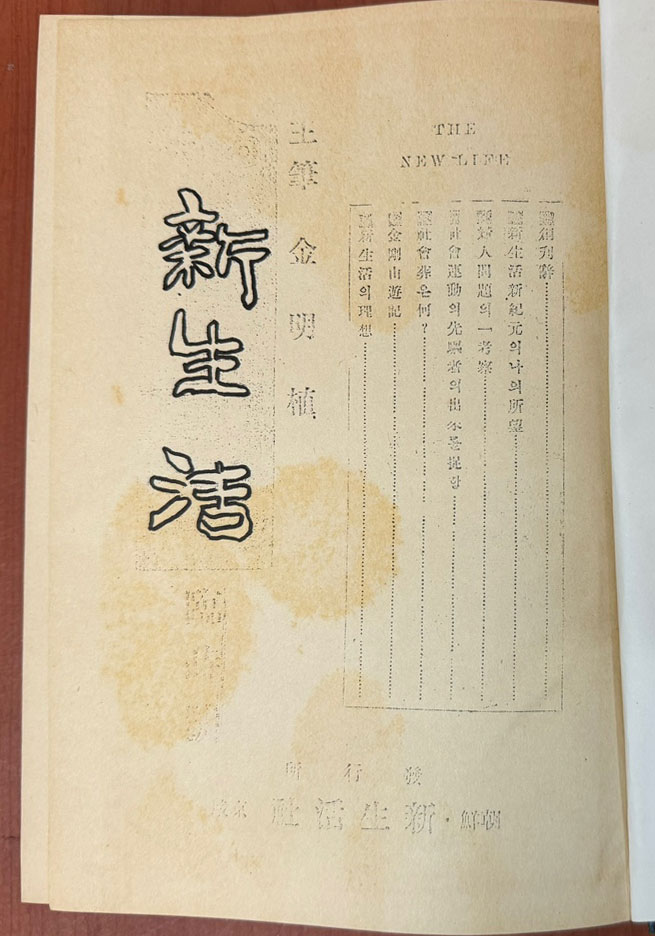 THE
NEW LIFE
創刊辭
新生活新紀元의나의所望
婦人問題의一考察
社會運動의先驅者의出來를促함
社會葬은何?
金剛山遊記
新生活의理想
主筆 金明植
新生活
臨時號
發行所
朝鮮・新生活社